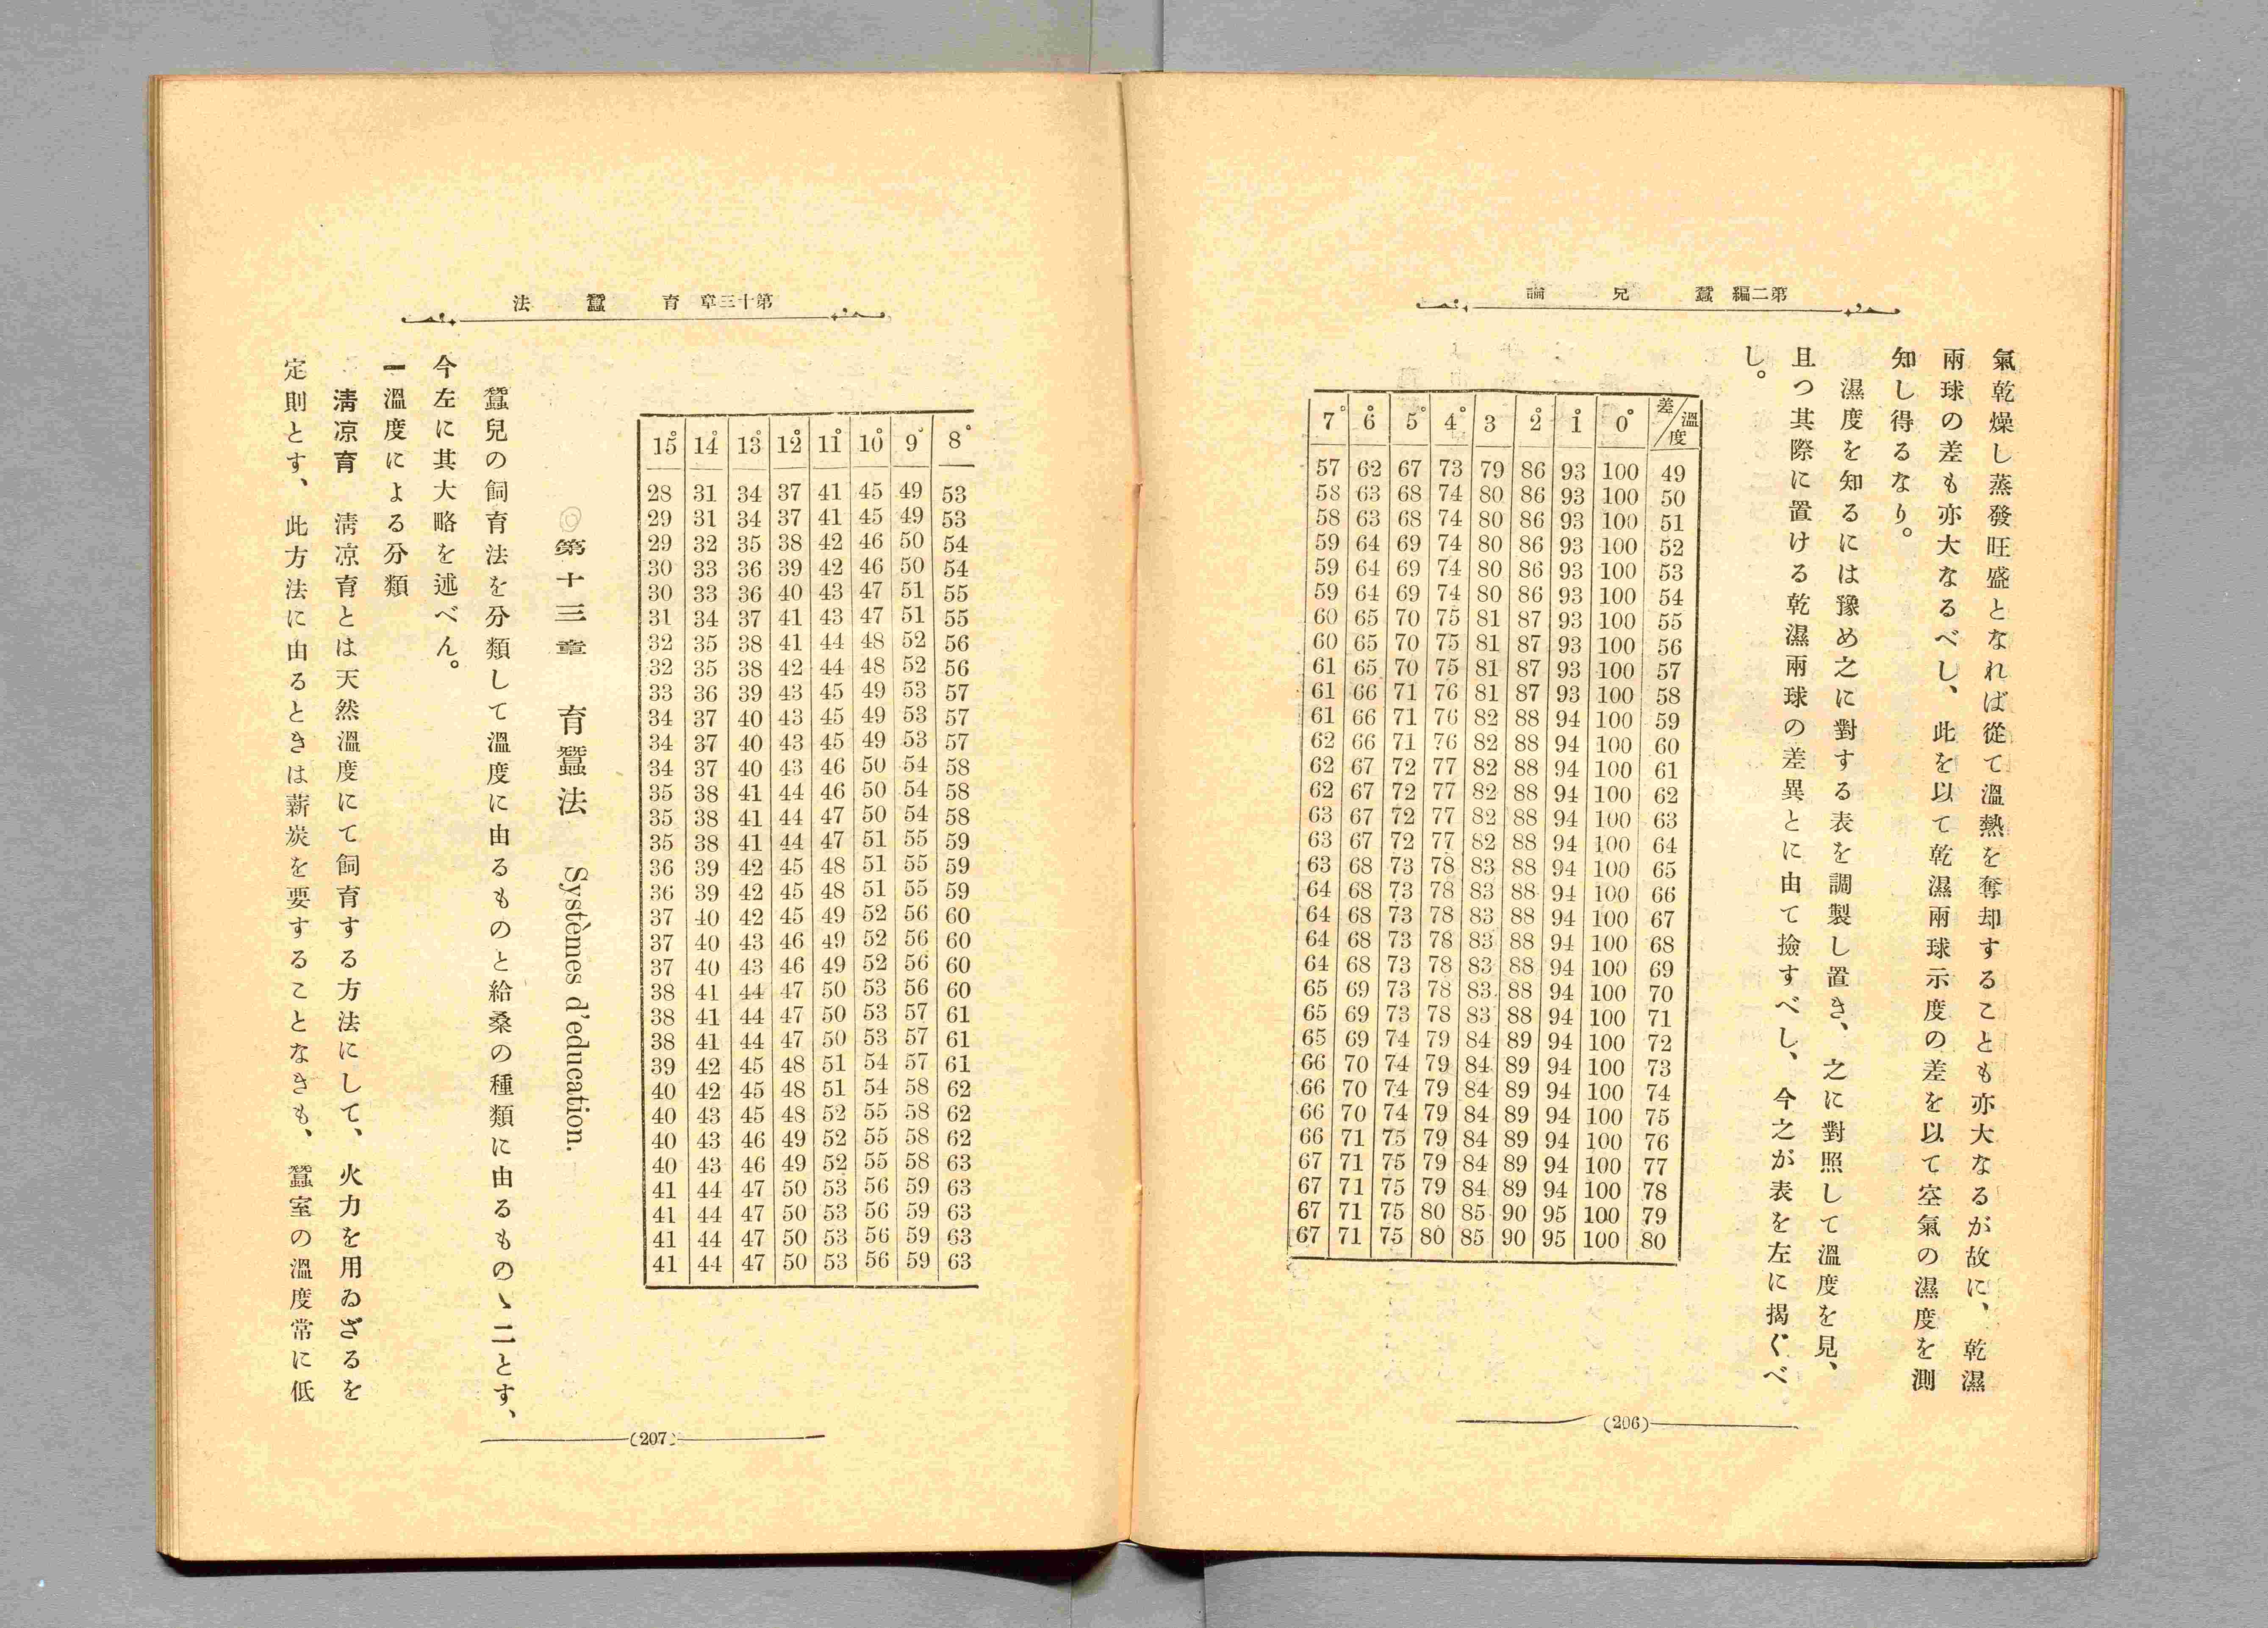 第二編 蠶兒論
氣乾燥し蒸發旺盛となれば從て溫熱を奪却することも亦大なるが故に、乾濕
兩球の差も亦大なるべし、此を以て乾濕兩球示度の差を以て空氣の濕度を測
知し得るなり。
濕度を知るには豫め之に對する表を調製し置き、之に對照して溫度を見、
且つ其際に置ける乾濕兩球の差異とに由て撿すべし、今之が表を左に揭ぐべ
し。
7° 6° 5° 4° 3 2° 1° 0° 差/溫度
57 62 67 73 79 86 93 100 49
58 63 68 74 80 86 93 100 50
58 63 68 74 80 86 93 100 51
59 64 69 74 80 86 93 100 52
59 64 69 74 80 86 93 100 53
59 64 69 74 80 86 93 100 54
60 65 70 75 81 87 93 100 55
60 65 70 75 81 87 93 100 56
61 65 70 75 81 87 93 100 57
61 66 71 76 81 87 93 100 58
61 66 71 76 82 88 94 100 59
62 66 71 76 82 88 94 100 60
62 67 72 77 82 88 94 100 61
62 67 72 77 82 88 94 100 62
63 67 72 77 82 88 94 100 63
63 67 72 77 82 88 94 100 64
63 68 73 78 83 88 94 100 65
64 68 73 78 83 88 94 100 66
64 68 73 78 83 88 94 100 67
64 68 73 78 83 88 94 100 68
64 68 73 78 83 88 94 100 69
65 69 73 78 83 88 94 100 70
65 69 73 78 83 88 94 100 71
65 69 74 79 84 89 94 100 72
66 70 74 79 84 89 94 100 73
66 70 74 79 84 89 94 100 74
66 70 74 79 84 89 94 100 75
66 71 75 79 84 89 94 100 76
67 71 75 79 84 89 94 100 77
67 71 75 79 84 89 94 100 78
67 71 75 80 85 90 95 100 79
67 71 75 80 85 90 95 100 80
(206)
第十三章 育蠶法
15° 14° 13° 12° 11° 10° 9° 8°
28 31 34 37 41 45 49 53
29 31 34 37 41 45 49 53
29 32 35 38 42 46 50 54
30 33 36 39 42 46 50 54
30 33 36 40 43 47 51 55
31 34 37 41 43 47 51 55
32 35 38 41 44 48 52 56
32 35 38 42 44 48 52 56
33 36 39 43 45 49 53 57
34 37 40 43 45 49 53 57
34 37 40 43 45 49 53 57
34 37 40 43 46 50 54 58
35 38 41 44 46 50 54 58
35 38 41 44 47 50 54 58
35 38 41 44 47 51 55 59
36 39 42 45 48 51 55 59
36 39 42 45 48 51 55 59
37 40 42 45 49 52 56 60
37 40 43 46 49 52 56 60
37 40 43 46 49 52 56 60
38 41 44 47 50 53 56 60
38 41 44 47 50 53 57 61
38 41 44 47 50 53 57 61
39 42 45 48 51 54 57 61
40 42 45 48 51 54 58 62
40 43 45 48 52 55 58 62
40 43 46 49 52 55 58 62
40 43 46 49 52 55 58 63
41 44 47 50 53 56 59 63
41 44 47 50 53 56 59 63
41 44 47 50 53 56 59 63
41 44 47 50 53 56 59 63
◎第十三章 育蠶法 Systèmes d'education.
蠶兒の飼育法を分類して溫度に由るものと給桑の種類に由るものゝ二とす、
今左に其大略を述べん。
一溫度による分類
淸凉育 淸凉育とは天然溫度にて飼育する方法にして、火力を用ゐざるを
定則とす、此方法に由るときは薪炭を要することなきも、蠶室の溫度常に低
(207)